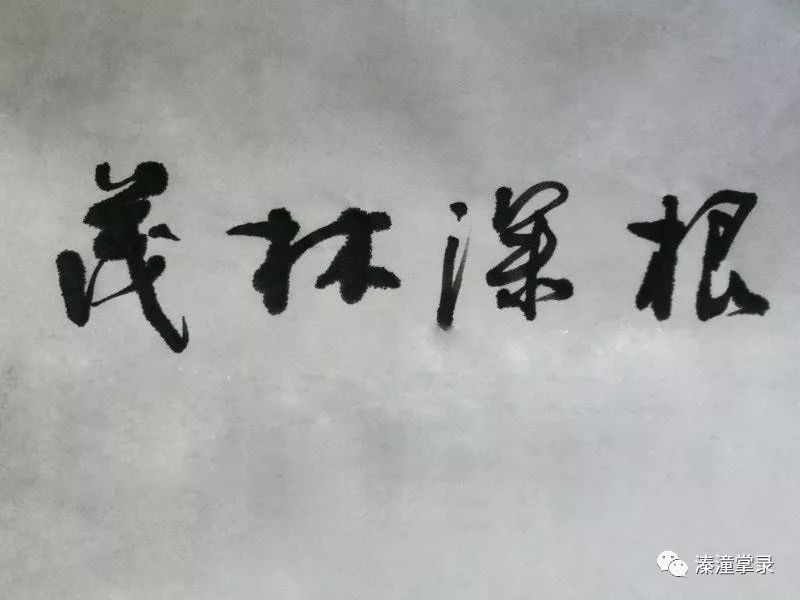 根深林茂
溱潼掌录